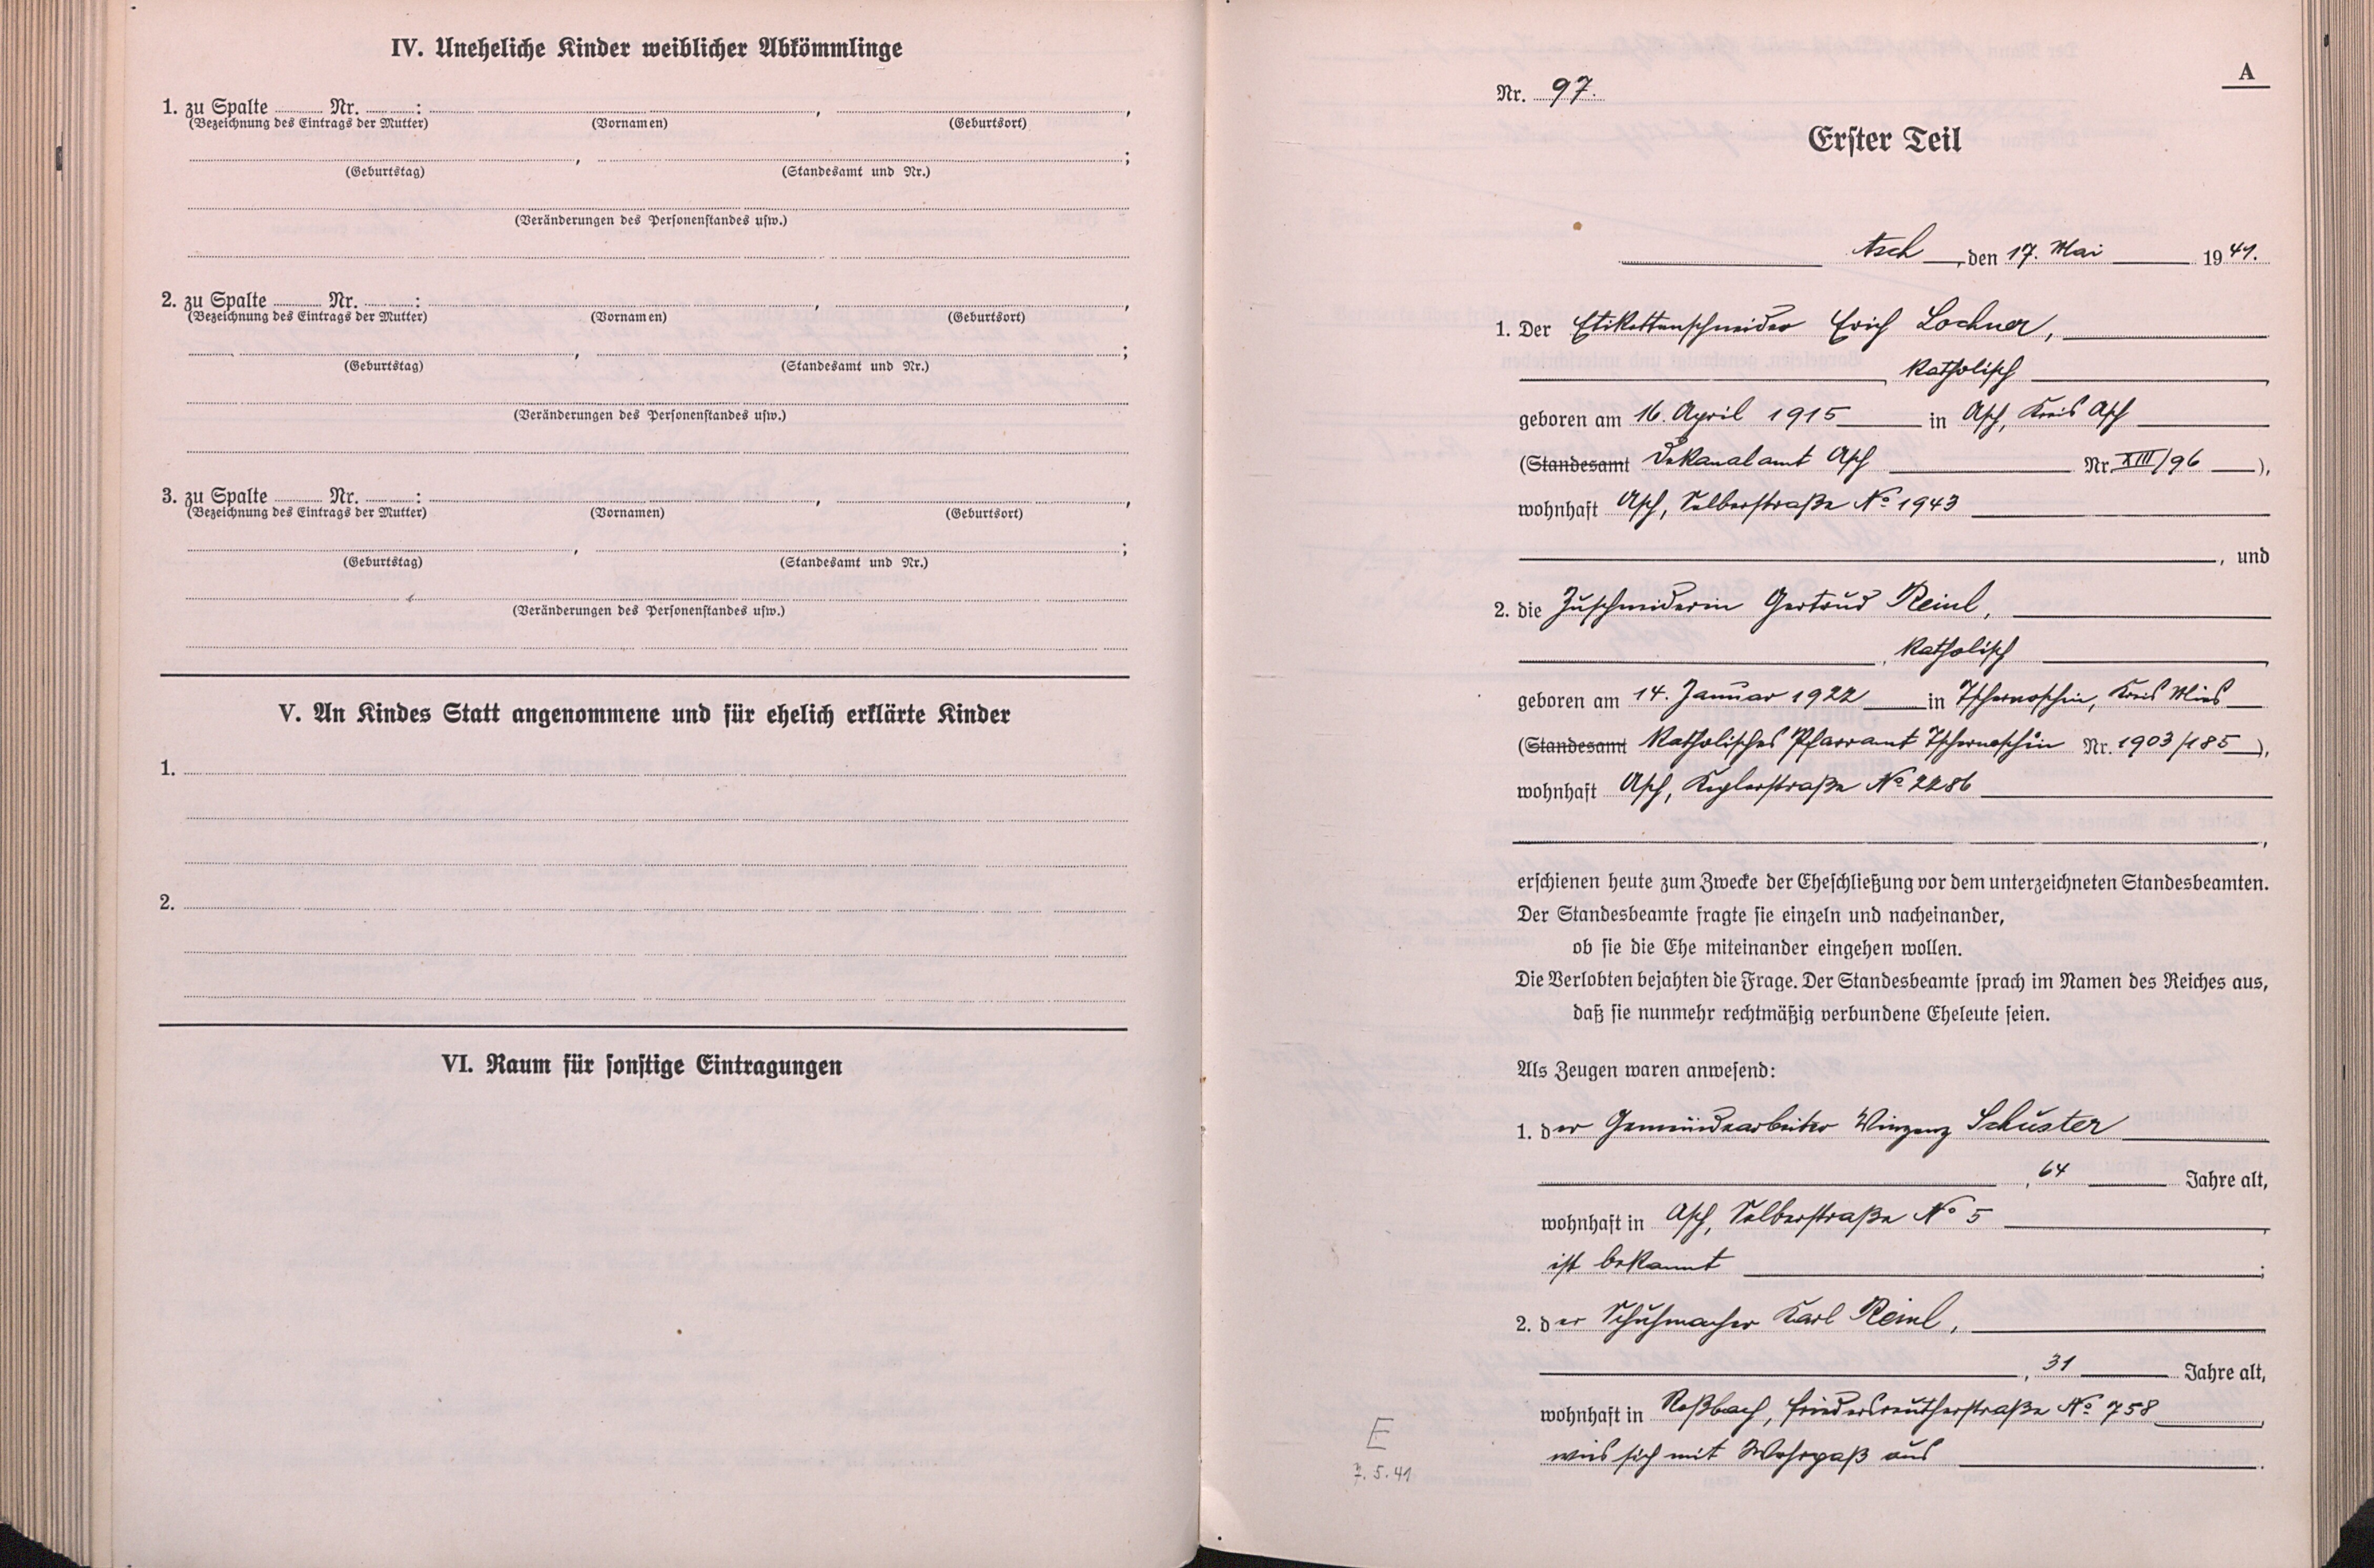 IV. Uneheliche Kinder weiblicher Abkömmlinge
1. zu Spalte Nr. : , ,
(Bezeichnung des Eintrags der Mutter) (Vornamen) (Geburtsort)
, ;
(Geburtstag) (Standesamt und Nr.)
(Veränderungen des Personenstandes usw.)
2. zu Spalte Nr. : , ,
(Bezeichnung des Eintrags der Mutter) (Vornamen) (Geburtsort)
, ;
(Geburtstag) (Standesamt und Nr.)
(Veränderungen des Personenstandes usw.)
3. zu Spalte Nr. : , ,
(Bezeichnung des Eintrags der Mutter) (Vornamen) (Geburtsort)
, ;
(Geburtstag) (Standesamt und Nr.)
(Veränderungen des Personenstandes usw.)
V. An Kindes Statt angenommene und für ehelich erklärte Kinder
1.
2.
VI. Raum für sonstige Eintragungen
A
Nr. 97.
Erster Teil
Asch, den 17. Mai 1941.
1. Der Etikettenschneider Erich Lochner,
, katholisch ,
geboren am 16. April 1915 in Asch, Kreis Asch
(Standesamt Dekanalamt Asch Nr. XIII/96 ),
wohnhaft Asch, Selberstraße No 1943
, und
2. die Zuschneiderin Gertrud Reinl,
, katholisch ,
geboren am 14. Januar 1922 in Tschernoschin, Kreis Mies
(Standesamt Katholisches Pfarramt Tschernoschin Nr. 1903/185 ),
wohnhaft Asch, Keglerstraße No 2286
,
erschienen heute zum Zwecke der Eheschließung vor dem unterzeichneten Standesbeamten.
Der Standesbeamte fragte sie einzeln und nacheinander,
ob sie die Ehe miteinander eingehen wollen.
Die Verlobten bejahten die Frage. Der Standesbeamte sprach im Namen des Reiches aus,
daß sie nunmehr rechtmäßig verbundene Eheleute seien.
Als Zeugen waren anwesend:
1. der Gemeindearbeiter Winzenz Schuster
, 64 Jahre alt,
wohnhaft in Asch, Selberstraße No 5 ,
ist bekannt ;
2. der Schuhmacher Karl Reinl,
, 31 Jahre alt,
wohnhaft in Roßbach, Friedersreutherstraße No 758 ,
wies sich mit Wehrpaß aus .
E
7.5.41